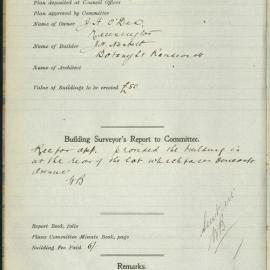 Plan deposited at Council Offices
Plan approved by Committee
Name of Owner
Kensington
Name of Builder
Botany St Kensington
Name of Architect
Value of Buildings to be erected £50
Building Surveyor's Report to Committee.
Rec for app. provided the building is
at the rear of the lot which faces
Avenue
Report Book, folio
Plans Committee Minute Book, page
Building Fee Paid 6/
Remarks.